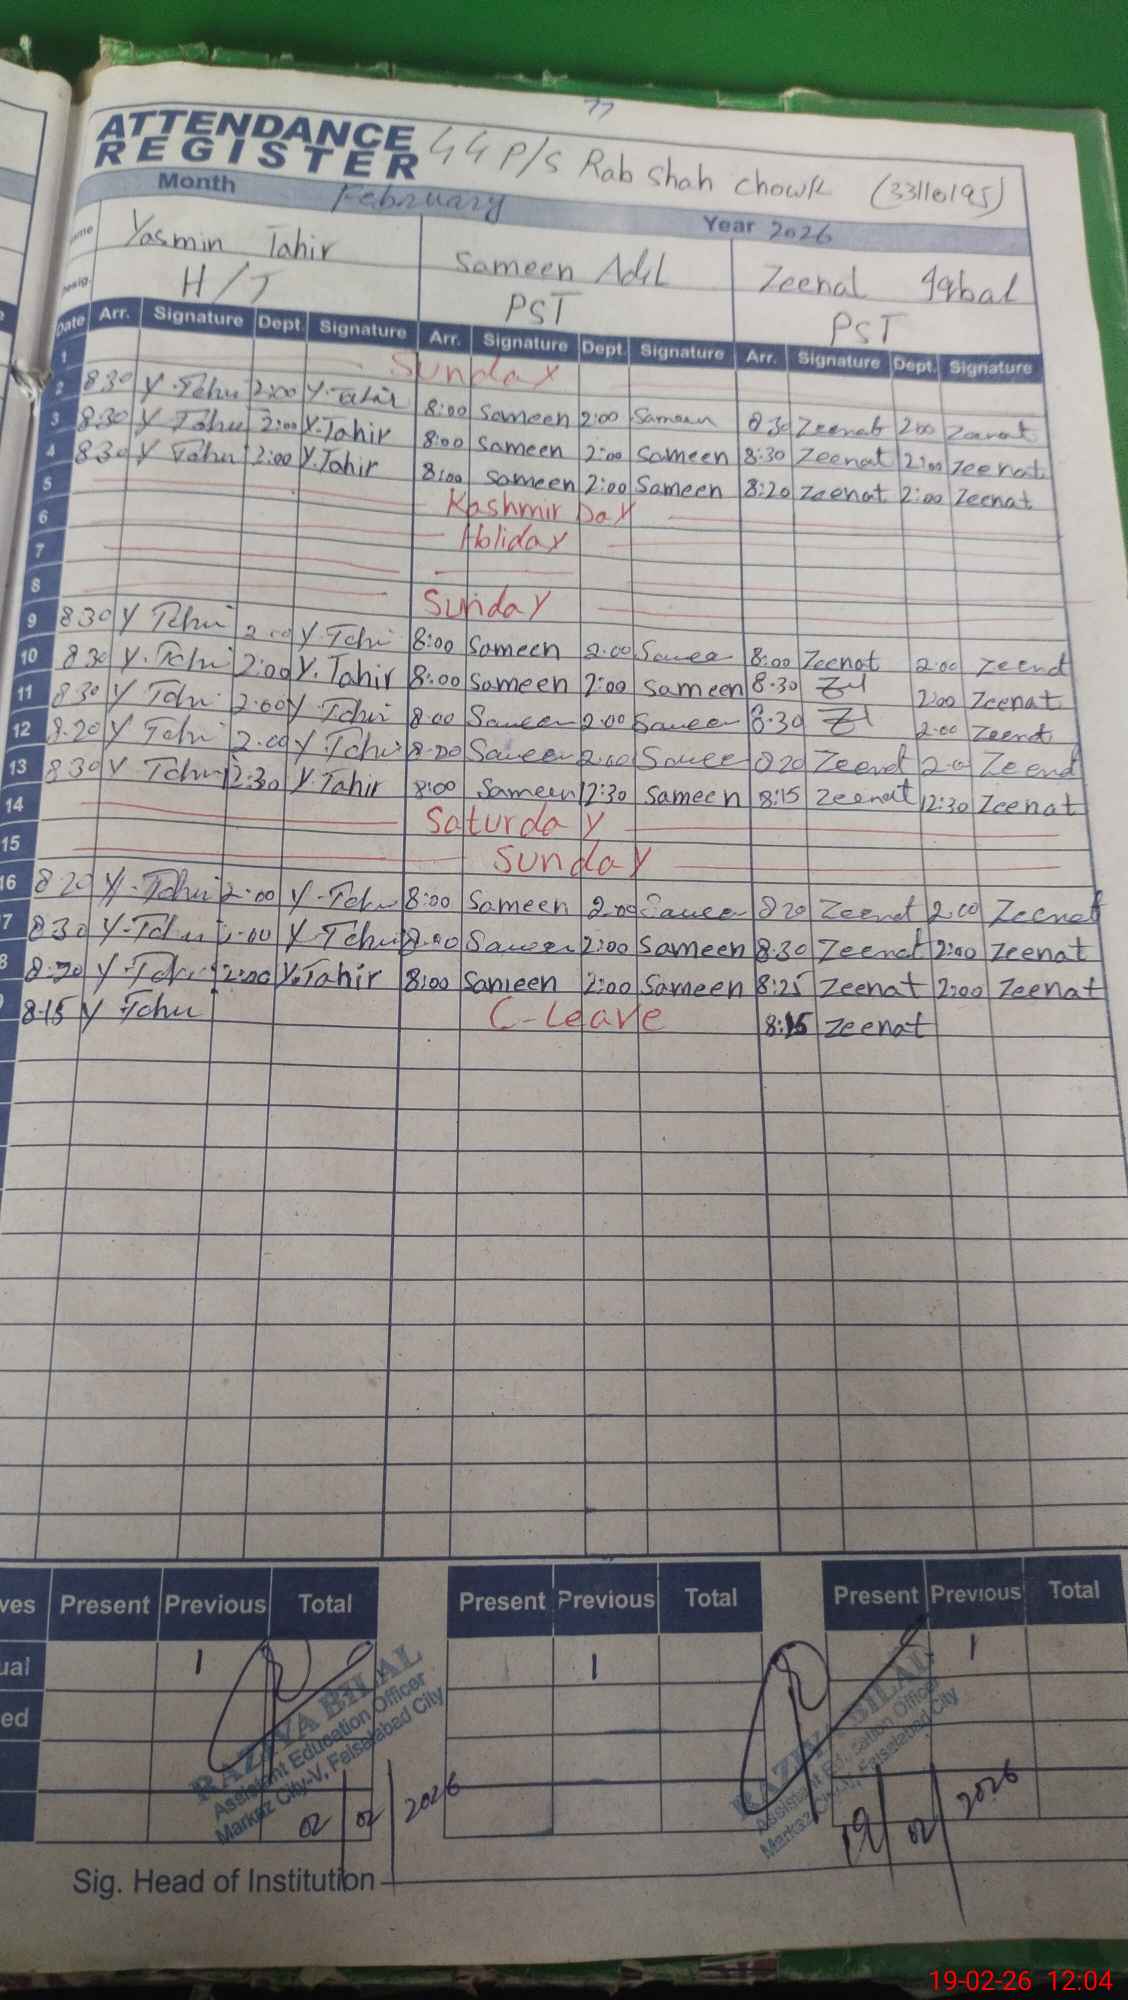 77
ATTENDANCE REGISTER GG P/S Rab shah chowk (33110195)
Month February Year 2026
Yasmin Tahir Sameen Adil Zeenat Iqbal
Desig. H/T PST PST
Date Arr. Signature Dept. Signature Arr. Signature Dept. Signature Arr. Signature Dept. Signature
1 Sunday
2 8:30 Y.Tahir 2:00 Y.Tahir 8:00 Sameen 2:00 Sameen 8:30 Zeenat 2:00 Zeenat
3 8:30 Y Tahir 2:00 Y.Tahir 8:00 Sameen 2:00 Sameen 8:30 Zeenat 2:00 Zeenat
4 8:30 Y Tahir 2:00 Y.Tahir 8:00 Sameen 2:00 Sameen 8:20 Zeenat 2:00 Zeenat
5 Kashmir Day
6 Holiday
7
8 Sunday
9 8:30 Y Tahir 2:00 Y.Tahir 8:00 Sameen 2:00 Sameen 8:00 Zeenat 2:00 Zeenat
10 8:30 Y.Tahir 2:00 Y.Tahir 8:00 Sameen 2:00 Sameen 8:30 2:00 Zeenat
11 8:30 Y Tahir 2:00 Y Tahir 8:00 Sameen 2:00 Sameen 8:30 2:00 Zeenat
12 8:20 Y Tahir 2:00 Y Tahir 8:00 Sameen 2:00 Sameen 8:20 Zeenat 2:00 Zeenat
13 8:30 Y Tahir 12:30 Y.Tahir 8:00 Sameen 12:30 Sameen 8:15 Zeenat 12:30 Zeenat
14 Saturday
15 Sunday
16 8:20 Y.Tahir 2:00 Y.Tahir 8:00 Sameen 2:00 Sameen 8:20 Zeenat 2:00 Zeenat
7 8:30 Y.Tahir 2:00 Y Tahir 8:00 Sameen 2:00 Sameen 8:30 Zeenat 2:00 Zeenat
8 8:20 Y.Tahir 2:00 Y.Tahir 8:00 Sameen 2:00 Sameen 8:25 Zeenat 2:00 Zeenat
8:15 Y Tahir C-Leave 8:15 Zeenat
ves Present Previous Total Present Previous Total Present Previous Total
ual 1 1 1
ed
RAZIYA BILAL
Assistant Education Officer
Markaz City-V, Faisalabad City
02/02/2026
RAZIYA BILAL
Assistant Education Officer
Markaz City-V, Faisalabad City
19/02/2026
Sig. Head of Institution
19-02-26 12:04